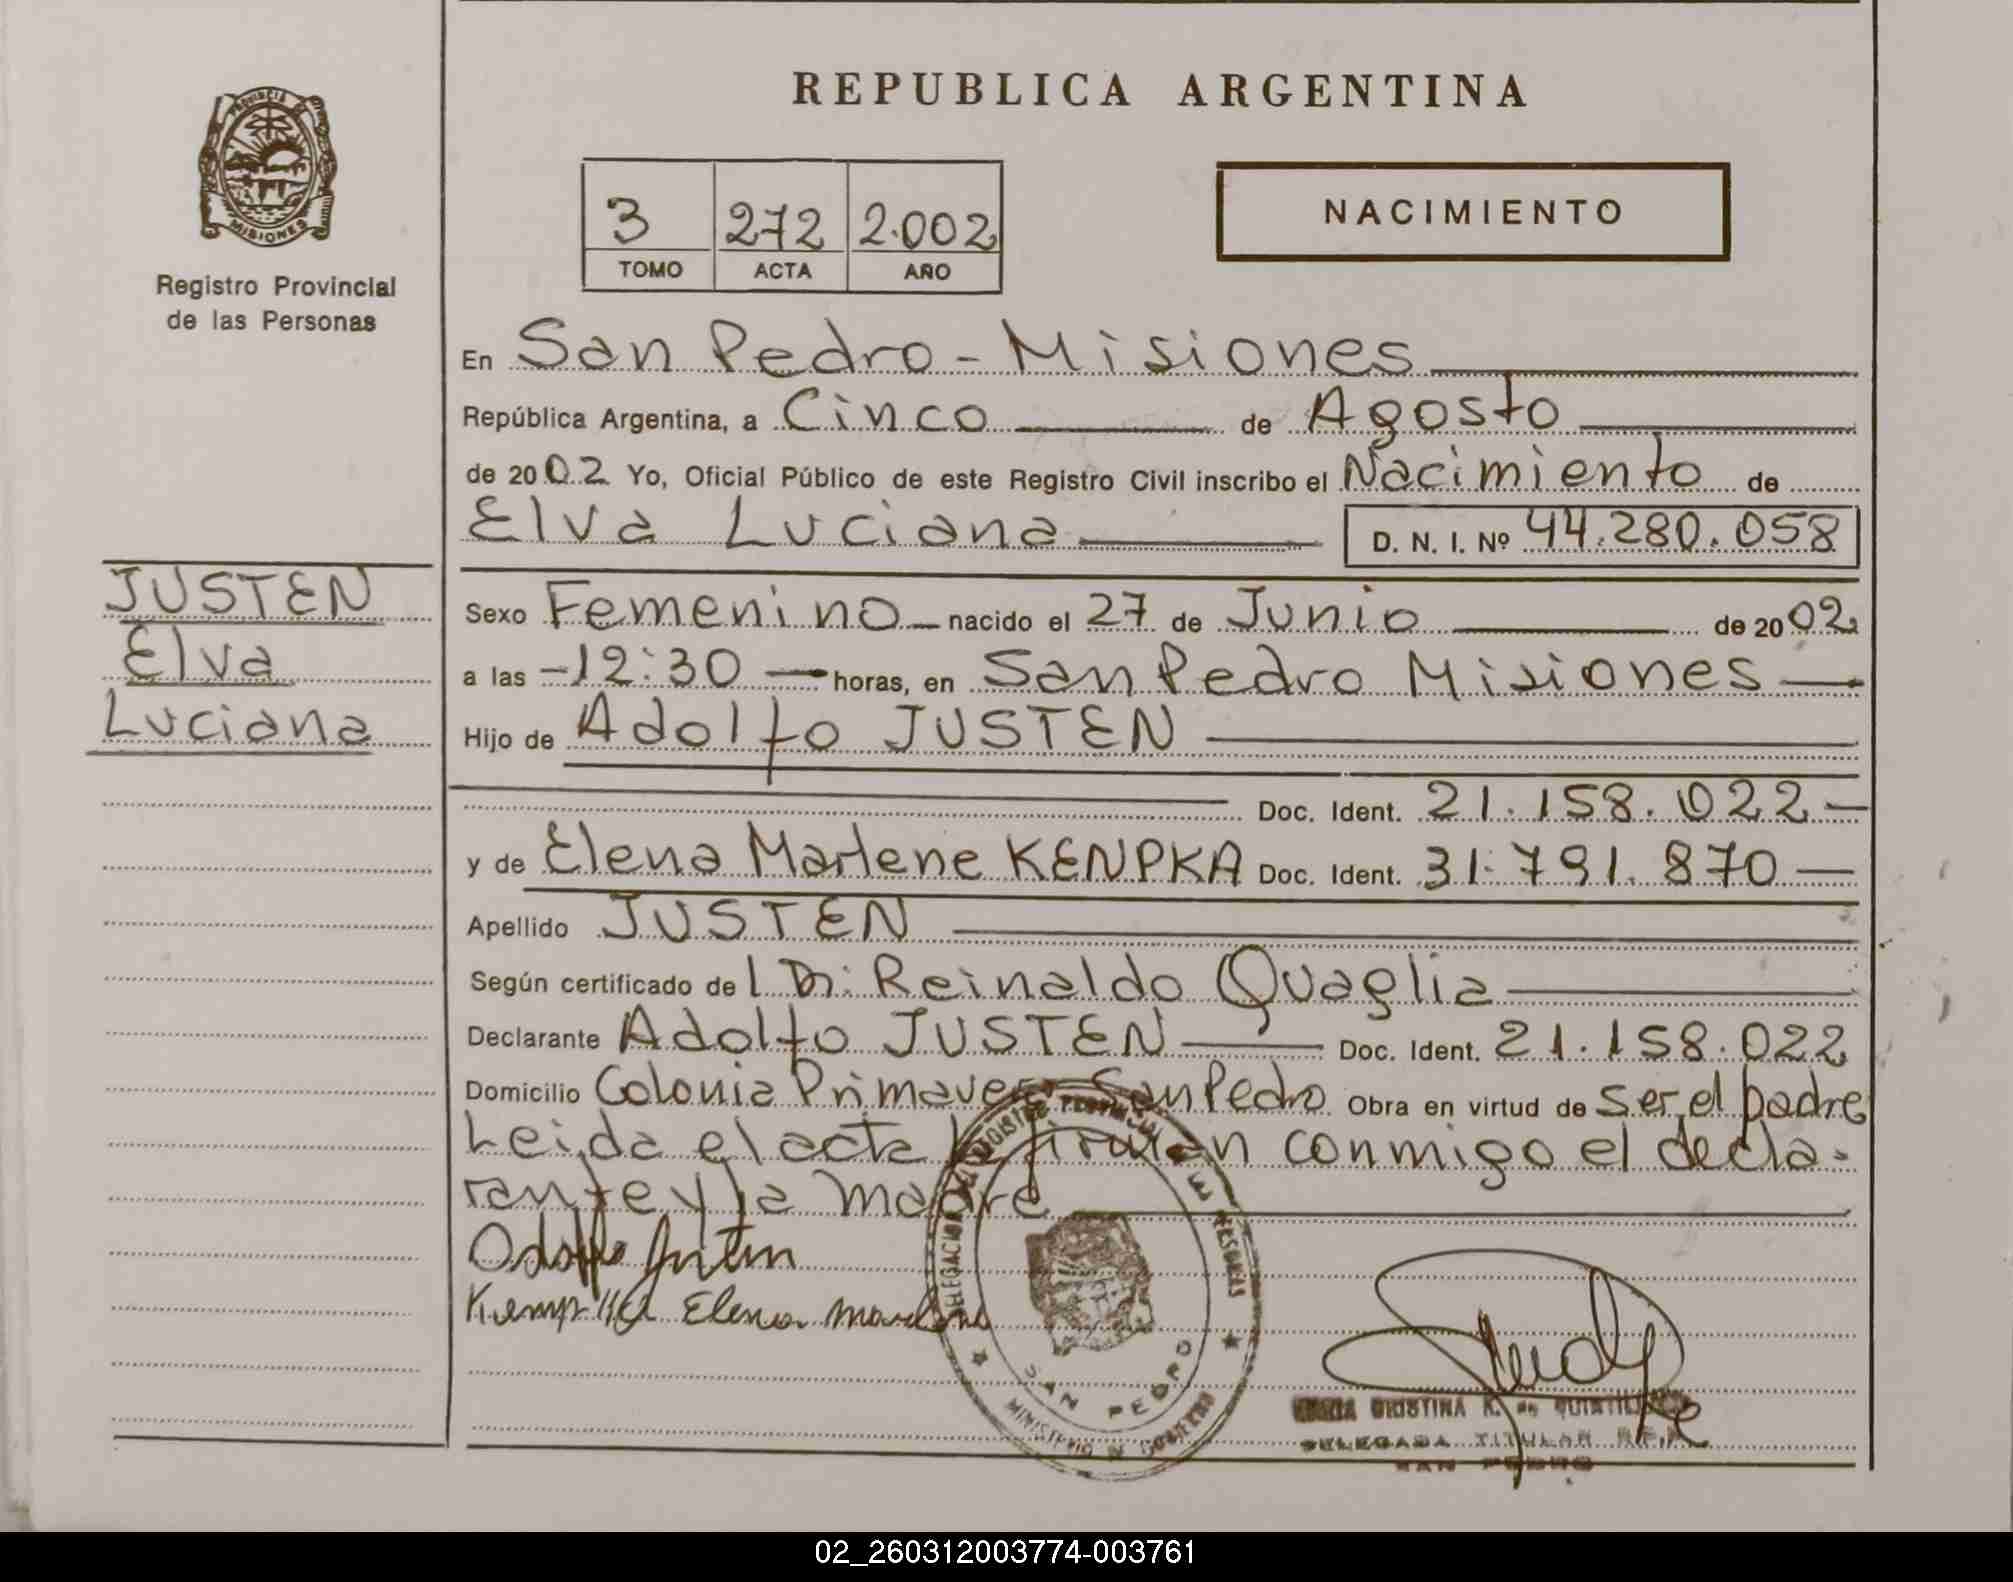 REPUBLICA ARGENTINA
PROVINCIA DE MISIONES
Registro Provincial
de las Personas
3 272 2.002
TOMO ACTA AÑO
NACIMIENTO
En San Pedro - Misiones
República Argentina, a Cinco de Agosto
de 2002 Yo, Oficial Público de este Registro Civil inscribo el Nacimiento de
Elva Luciana D. N. I. Nº 44.280.058
JUSTEN
Elva
Luciana
Sexo Femenino nacido el 27 de Junio de 2002
a las -12:30 horas, en San Pedro Misiones
Hijo de Adolfo JUSTEN
Doc. Ident. 21.158.022
y de Elena Marlene KENPKA Doc. Ident. 31.791.870
Apellido JUSTEN
Según certificado de l Dr: Reinaldo Quaglia
Declarante Adolfo JUSTEN Doc. Ident. 21.158.022
Domicilio Colonia Primavera San Pedro Obra en virtud de ser el padre
Leida el acta la firman conmigo el decla-
rante y la madre
Adolfo Justen
Kempka Elena Marlene
SAN PEDRO
MINISTERIO DE GOBIERNO
MARIA CRISTINA K. de
DELEGADA TITULAR R.P.P.
SAN PEDRO
02_260312003774-003761